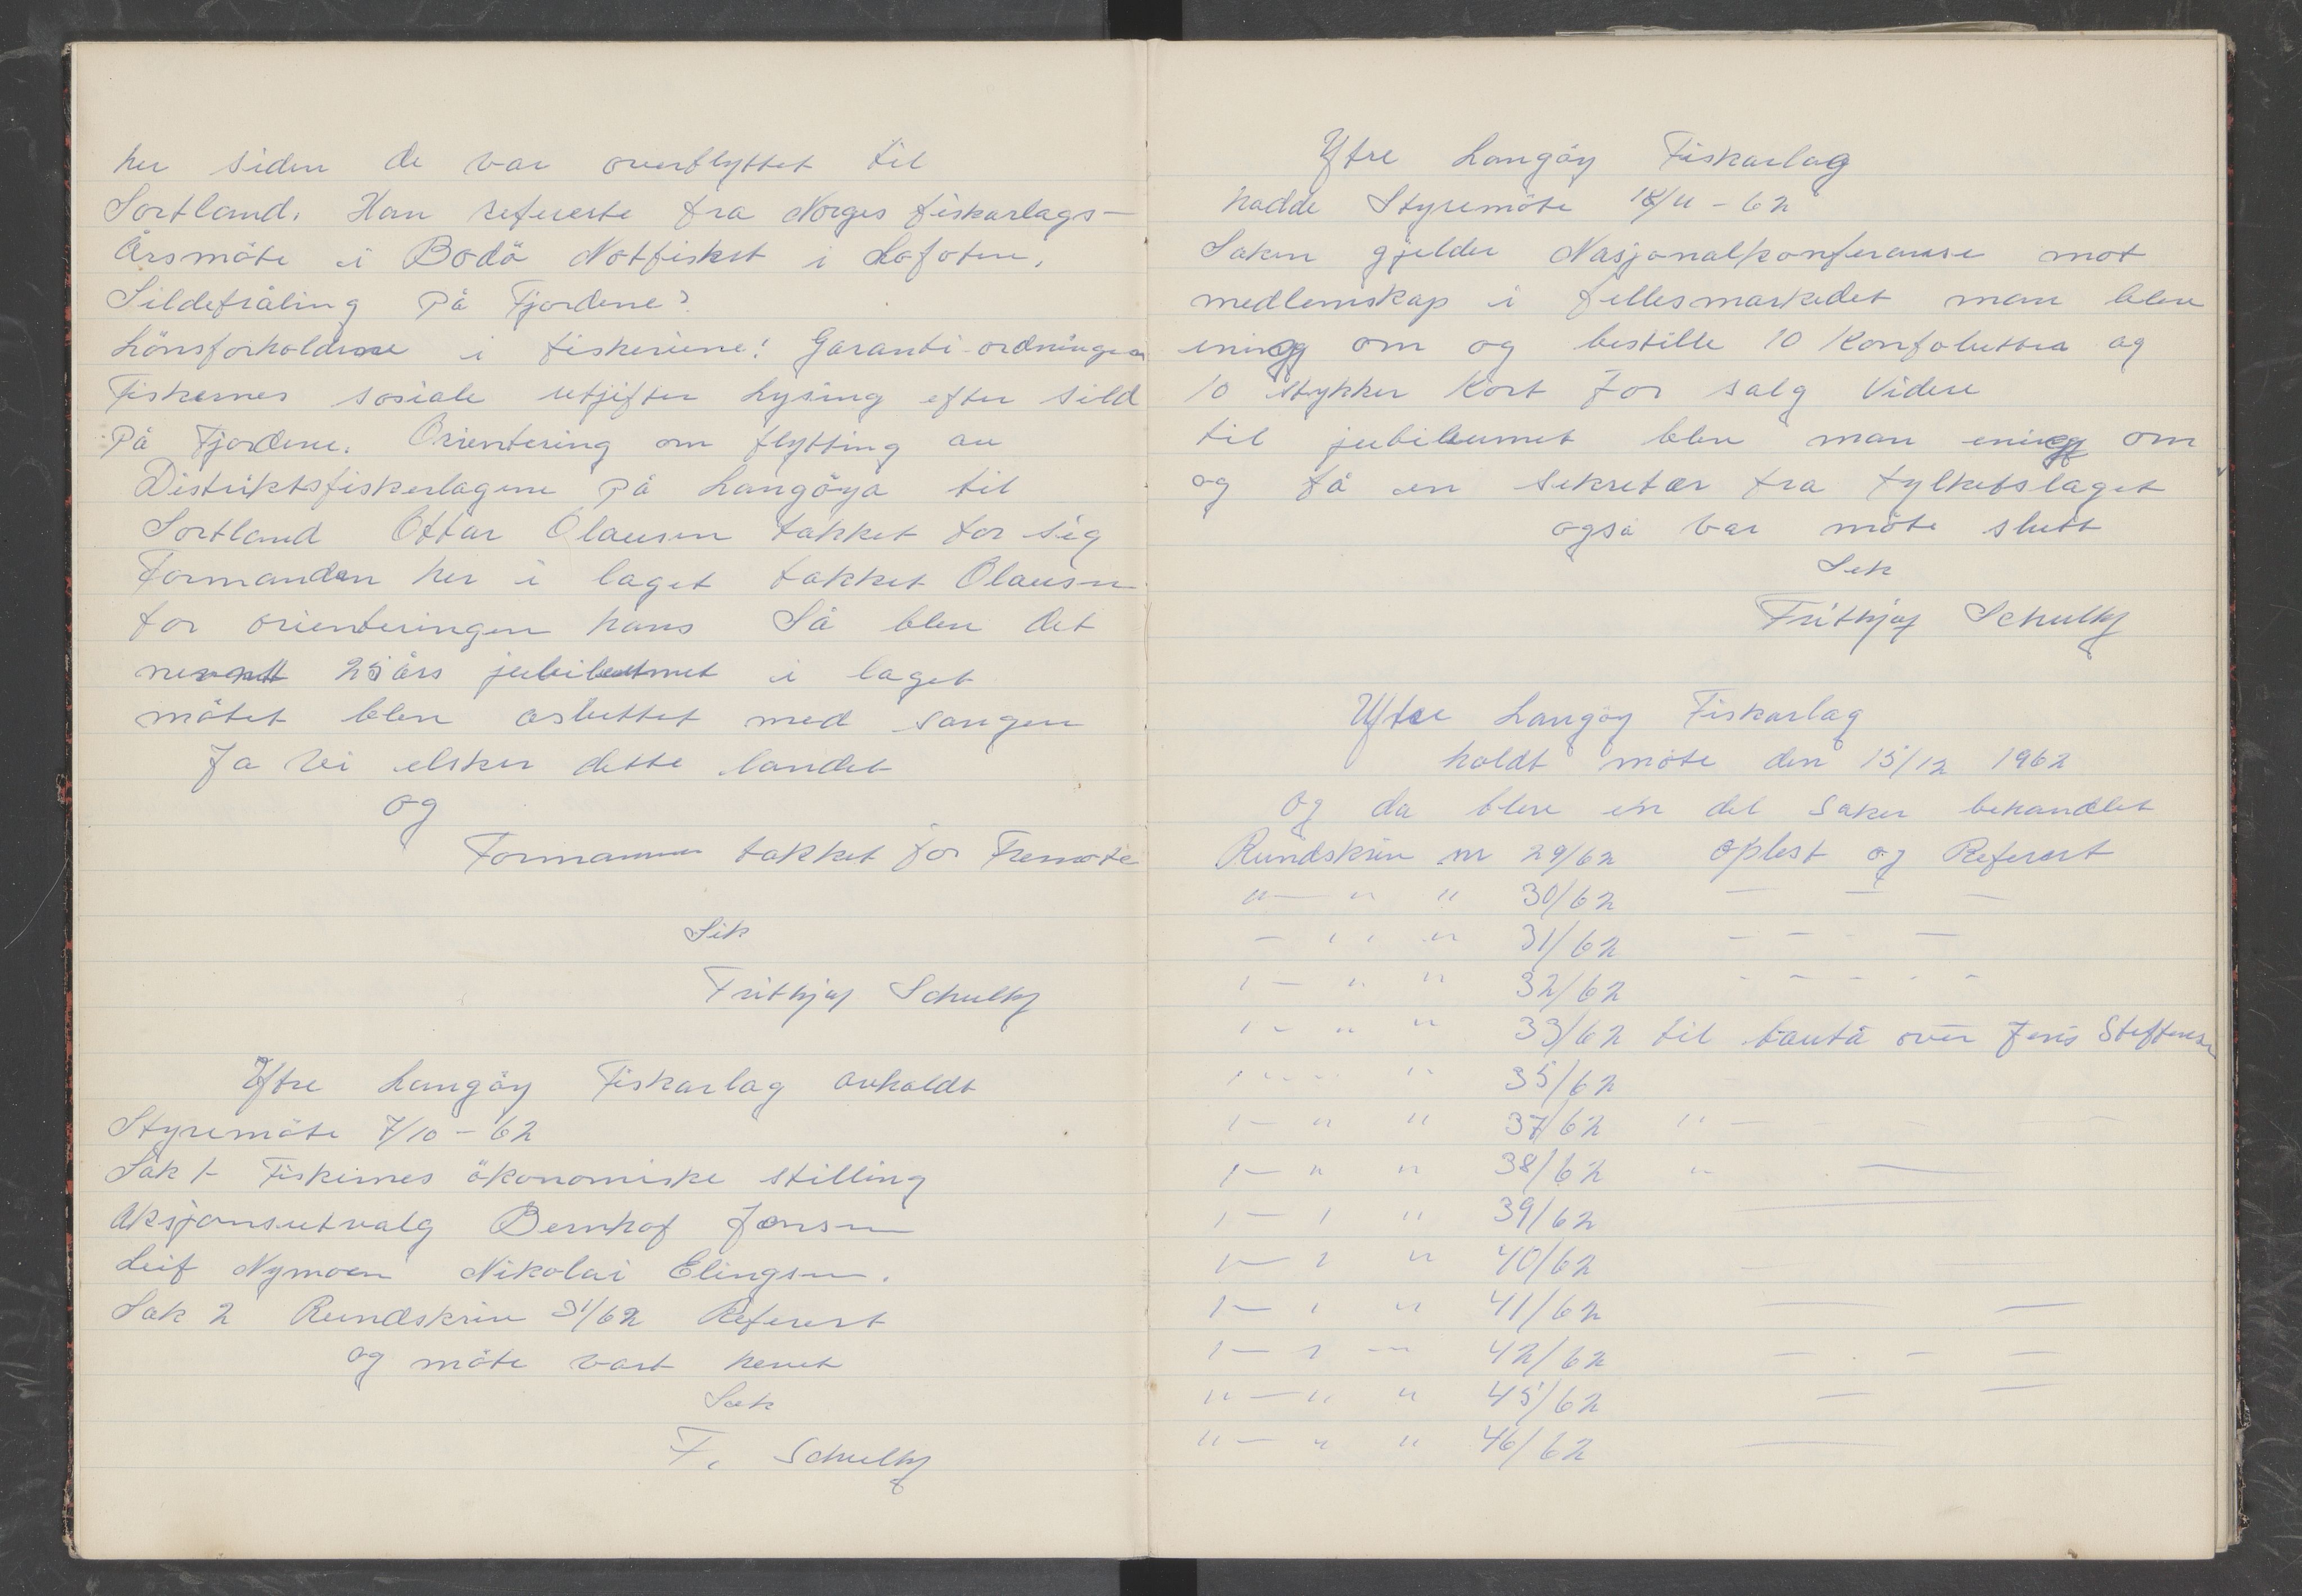 her siden de var overflyttet til
Sortland. Han refererte fra Norges fiskarlags-
Årsmöte i Bodö Notfisket i Lofoten,
Sildetråling på Fjordene?
Lönsforholdene i fiskeriene! Garanti-ordningen
Fiskernes sosiale utjifter Lysing efter sild
På Fjordene. Orientering om flytting av
Distriktsfiskerlagene på Langöya til
Sortland Ottar Olausen takket for sig
Formanden her i laget takket Olausen
for orienteringen hans Så blev det
nevnt 25 års jubileumet i laget
mötet blev avsluttet med sangen
Ja Vi elsker dette landet
og
Formannen takket for Fremöte
Sek
Frithjof Schultz
Yttre Langöy Fiskarlag avholdt
Styremöte 7/10 - 62
Sak 1- Fiskernes ökonomiske stilling
Aksjonsutvalg Bernhof Jensen
Leif Nymoen Nikolai Elingsen.
Sak 2 Rundskriv 31/62 Referert
og möte vart hevet
Sek
F. Schultz
Yttre Langöy Fiskarlag
hadde Styremöte 18/11 - 62
Saken gjelder Nasjonalkonferanse mot
medlemskap i fellesmarkedet man blev
enig om og bestille 10 Konfolutter og
10 stykker Kort for salg Videre
til jubileumet blev man enig om
og få en sekretær fra fylketslaget
også var möte slutt
Sek
Frithjof Schultz
Yttre Langöy Fiskarlag
holdt möte den 15/12 1962
Og da blev en del saker behandlet
Rundskriv nr 29/62 Oplest og Referert
"— " " 30/62 — — —
— " " 31/62 — — —
"— " " 32/62 - - - - -
"— " " 33/62 til bauta over Jens Steffensen
"— " 35/62
"— " " 37/62 " —
"— " " 38/62 " —
"— " " 39/62 —
"— " " 40/62 —
"— " " 41/62 — —
"— " — 42/62 — - —
"— " " 45/62 — —
"— " " 46/62 —